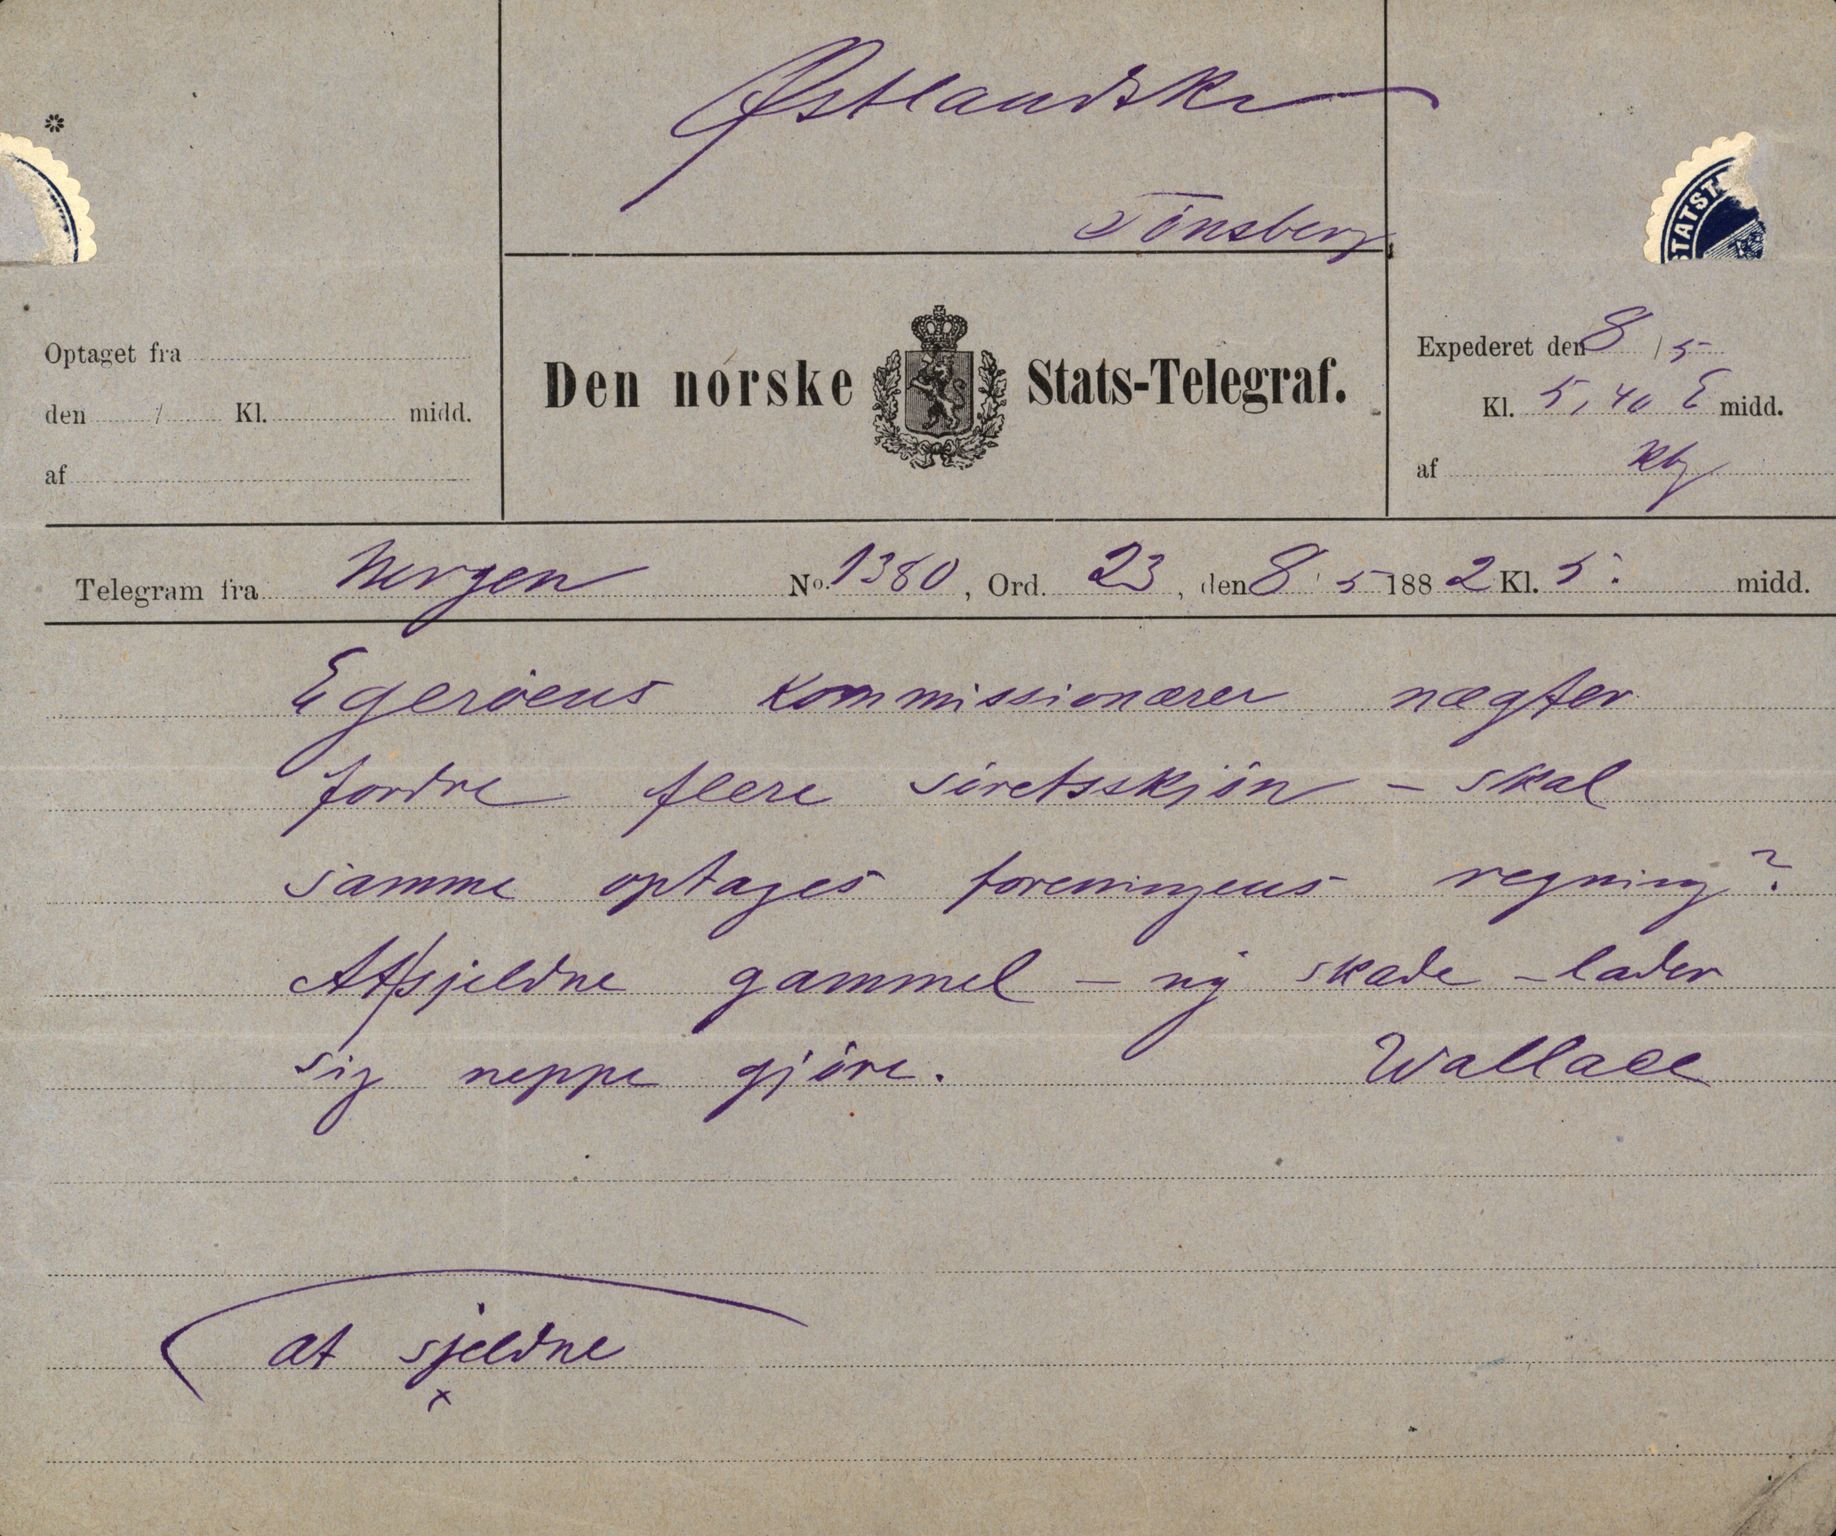 Østlandske
Tönsberg
STATST
Optaget fra
den / Kl. midd.
af
Den norske Stats-Telegraf.
Expederet den 8 / 5
Kl. 5,40 E midd.
af
Telegram fra Bergen No. 1380, Ord. 23, den 8 / 5 1882 Kl. 5. midd.
Egeröens kommissionærer nægter
fordre flere söretsskjön – skal
samme optages foreningens regning?
At/sjeldne gammel – ny skade – lader
sig neppe gjöre. Wallace
at sjeldne
x